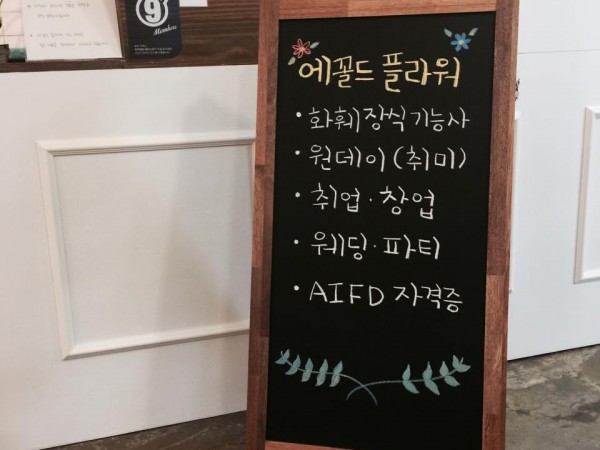 9
Members
에꼴드 플라워
• 화훼장식기능사
• 원데이 (취미)
• 취업 · 창업
• 웨딩 · 파티
• AIFD 자격증